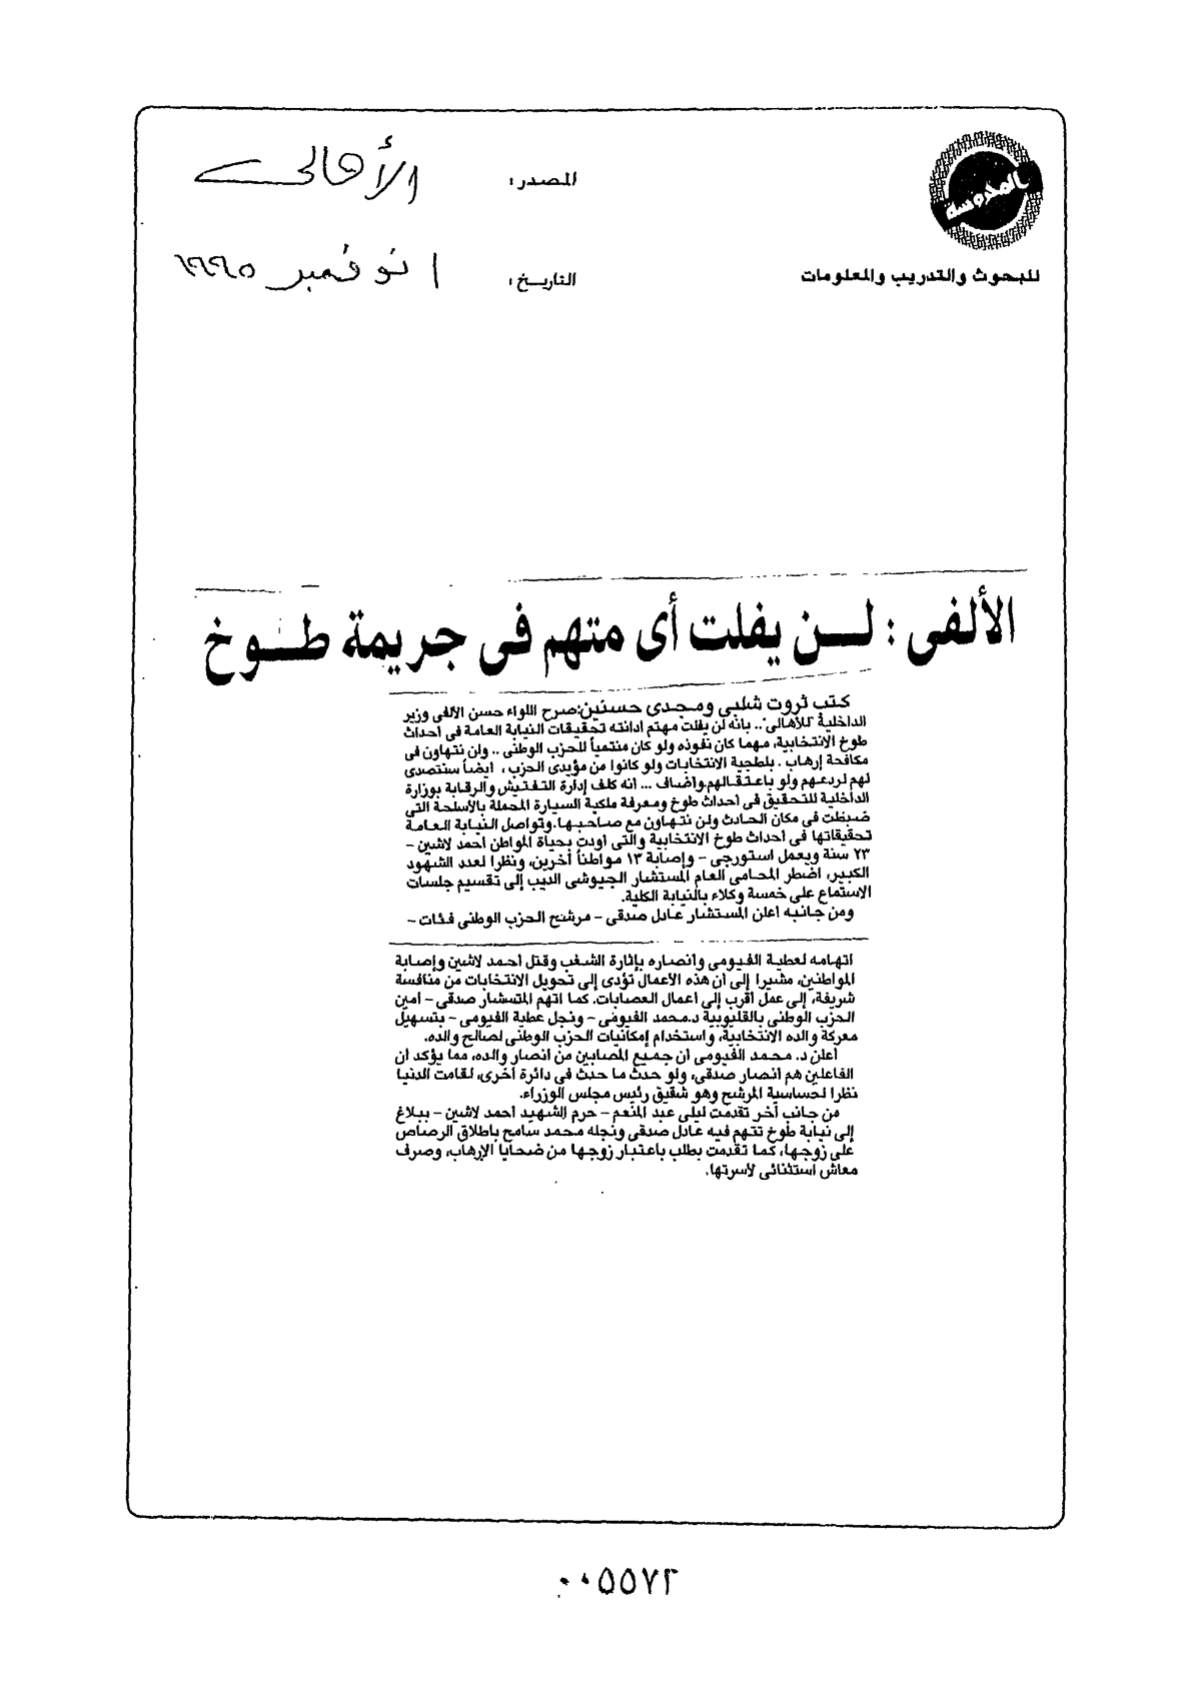 المحروسة
للبحوث والتدريب والمعلومات
المصدر: الأهالى
التاريخ: ١ نوفمبر ١٩٩٥
الألفى : لـــن يفلت أى متهم فى جريمة طـــوخ
كتب ثروت شلبى ومجدى حسنين:صرح اللواء حسن الألفى وزير
الداخلية "للأهالى".. بانه لن يفلت مهتم ادانته تحقيقات النيابة العامة فى احداث
طوخ الانتخابية، مهما كان نفوذه ولو كان منتمياً للحزب الوطنى .. ولن نتهاون فى
مكافحة إرهاب . بلطجية الانتخابات ولو كانوا من مؤيدى الحزب ، ايضاً سنتصدى
لهم لردعهم ولو باعتقالهم.واضاف ... انه كلف إدارة التفتيش والرقابة بوزارة
الداخلية للتحقيق فى احداث طوخ ومعرفة ملكية السيارة المحملة بالأسلحة التى
ضبطت فى مكان الحادث ولن نتهاون مع صاحبها.وتواصل النيابة العامة
تحقيقاتها فى احداث طوخ الانتخابية والتى أودت بحياة المواطن احمد لاشين -
٢٣ سنة ويعمل استورجى - وإصابة ١٣ مواطناً آخرين، ونظرا لعدد الشهود
الكبير، اضطر المحامى العام المستشار الجيوشى الديب إلى تقسيم جلسات
الاستماع على خمسة وكلاء بالنيابة الكلية.
ومن جانبه اعلن المستشار عادل صدقى - مرشح الحزب الوطنى فئات -
اتهامه لعطية الفيومى وانصاره بإثارة الشغب وقتل احمد لاشين وإصابة
المواطنين، مشيرا إلى أن هذه الأعمال تؤدى إلى تحويل الانتخابات من منافسة
شريفة، إلى عمل اقرب إلى اعمال العصابات. كما اتهم المتسشار صدقى - امين
الحزب الوطنى بالقليوبية د.محمد الفيومى - ونجل عطية الفيومى - بتسهيل
معركة والده الانتخابية، واستخدام إمكانيات الحزب الوطنى لصالح والده.
أعلن د. محمد الفيومى ان جميع المصابين من انصار والده، مما يؤكد ان
الفاعلين هم انصار صدقى، ولو حدث ما حدث فى دائرة أخرى، لقامت الدنيا
نظرا لحساسية المرشح وهو شقيق رئيس مجلس الوزراء.
من جانب آخر تقدمت ليلى عبد المنعم - حرم الشهيد احمد لاشين - ببلاغ
إلى نيابة طوخ تتهم فيه عادل صدقى ونجله محمد سامح باطلاق الرصاص
على زوجها، كما تقدمت بطلب باعتبار زوجها من ضحايا الإرهاب، وصرف
معاش استثنائى لأسرتها.
٠٠٥٥٧٢